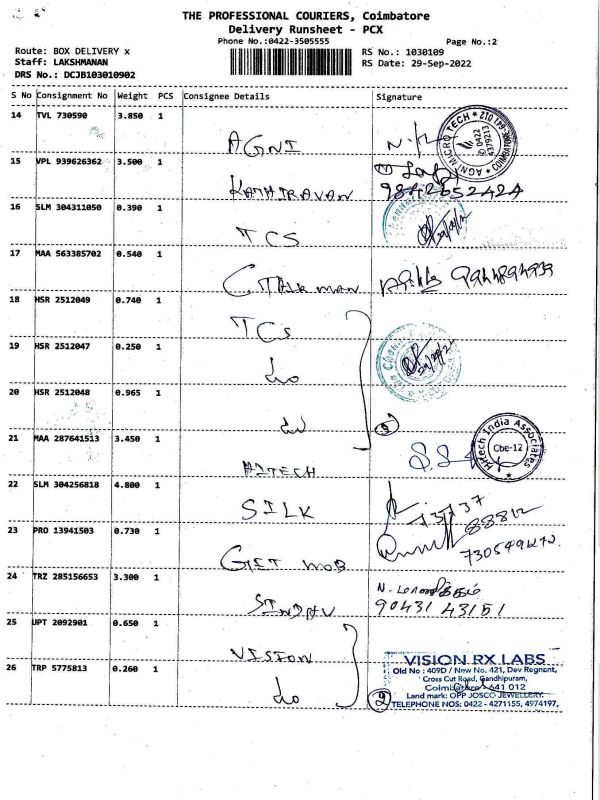 THE PROFESSIONAL COURIERS, Coimbatore
Delivery Runsheet - PCX
Phone No.:0422-3505555
Page No.:2
Route: BOX DELIVERY x
Staff: LAKSHMANAN
DRS No.: DCJB103010902
RS No.: 1030109
RS Date: 29-Sep-2022
S No Consignment No Weight PCS Consignee Details Signature
14 TVL 730590 3.850 1 AGNI
AGNI MICRO TECH
0422
COIMBATORE-641 012
15 VPL 939626362 3.500 1 KATHIRAVAN
9842652424
16 SLM 304311050 0.390 1 TCS
17 MAA 563385702 0.540 1
18 HSR 2512049 0.740 1 TCS
19 HSR 2512047 0.250 1 do
20 HSR 2512048 0.965 1 do
3
21 MAA 287641513 3.450 1 HITECH
Hitech India Associates
Cbe-12
22 SLM 304256818 4.800 1 SILK
23 PRO 13941503 0.730 1 GET MOB
24 TRZ 285156653 3.300 1
90431 43151
25 UPT 2092901 0.650 1 VISION
26 TRP 5775813 0.260 1 do
2
VISION RX LABS
Old No : 409D / New No. 421, Dev Regnant,
Cross Cut Road, Gandhipuram,
Coimbatore - 641 012
Land mark: OPP JOSCO JEWELLERY.
TELEPHONE NOS: 0422 - 4271155, 4974197,